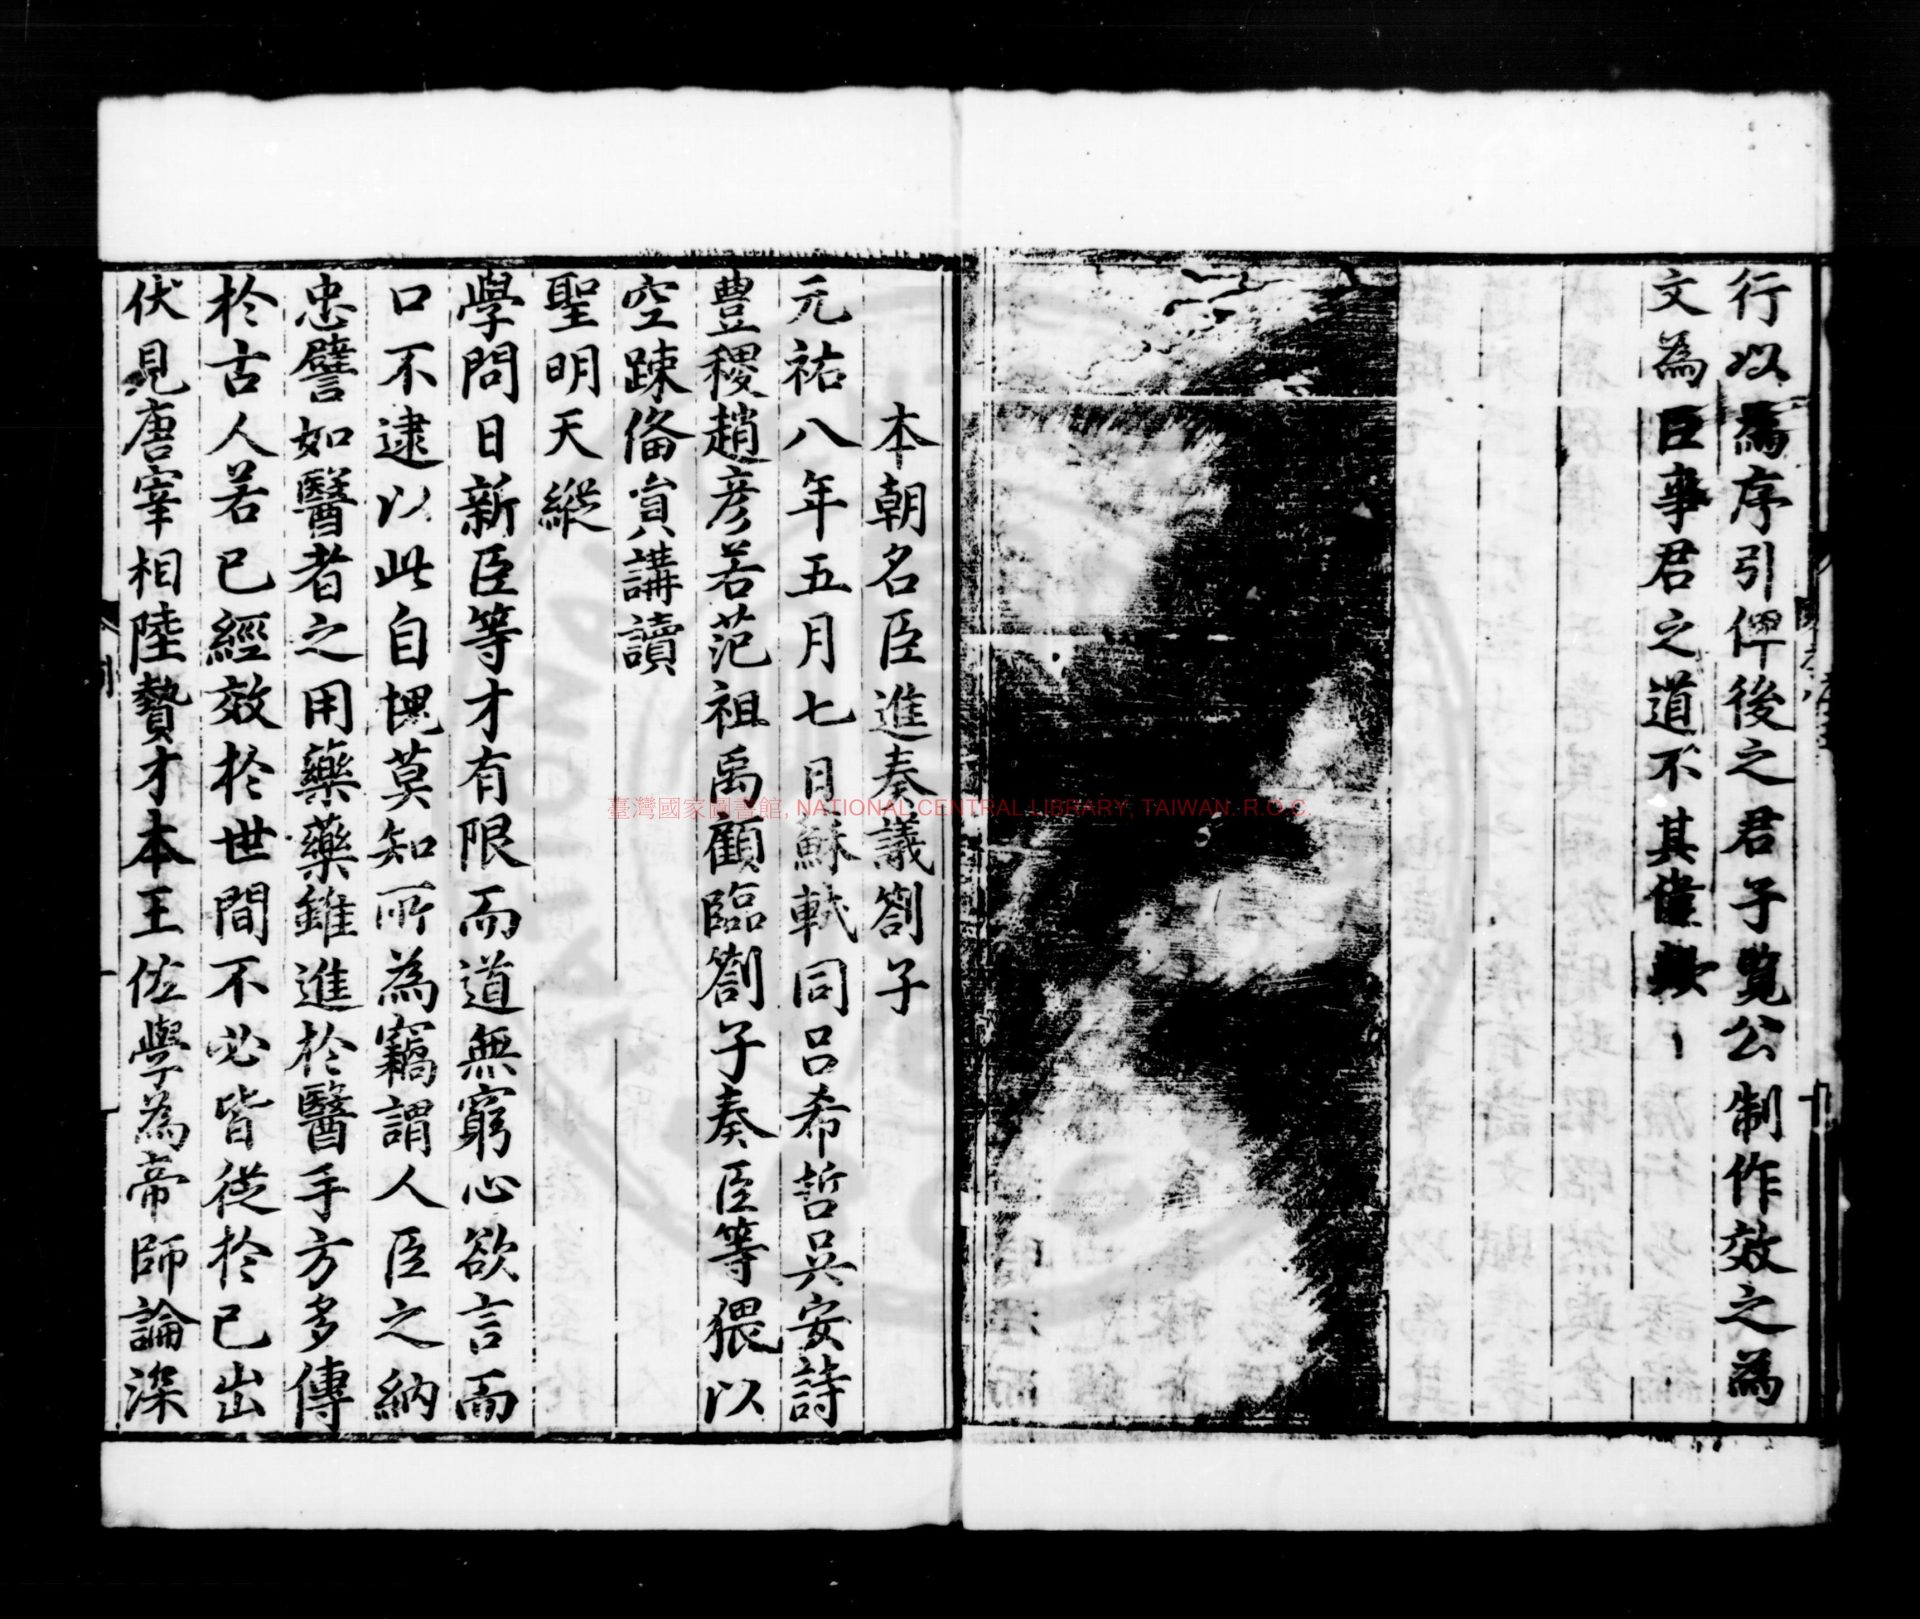 行以為序引俾後之君子覽公制作效之為
文為臣事君之道不其偉歟
本朝名臣進奏議劄子
元祐八年五月七日蘇軾同呂希哲吳安詩
豊稷趙彥若范祖禹顧臨劄子奏臣等猥以
空踈俻員講讀
聖明天縱
學問日新臣等才有限而道無窮心欲言而
口不逮以此自愧莫知所為竊謂人臣之納
忠譬如醫者之用藥藥雖進於醫手方多傳
於古人若已經效於世間不必皆從於己出
伏見唐宰相陸贄才本王佐學為帝師論深
臺灣國家圖書館, NATIONAL CENTRAL LIBRARY, TAIWAN. R.O.C